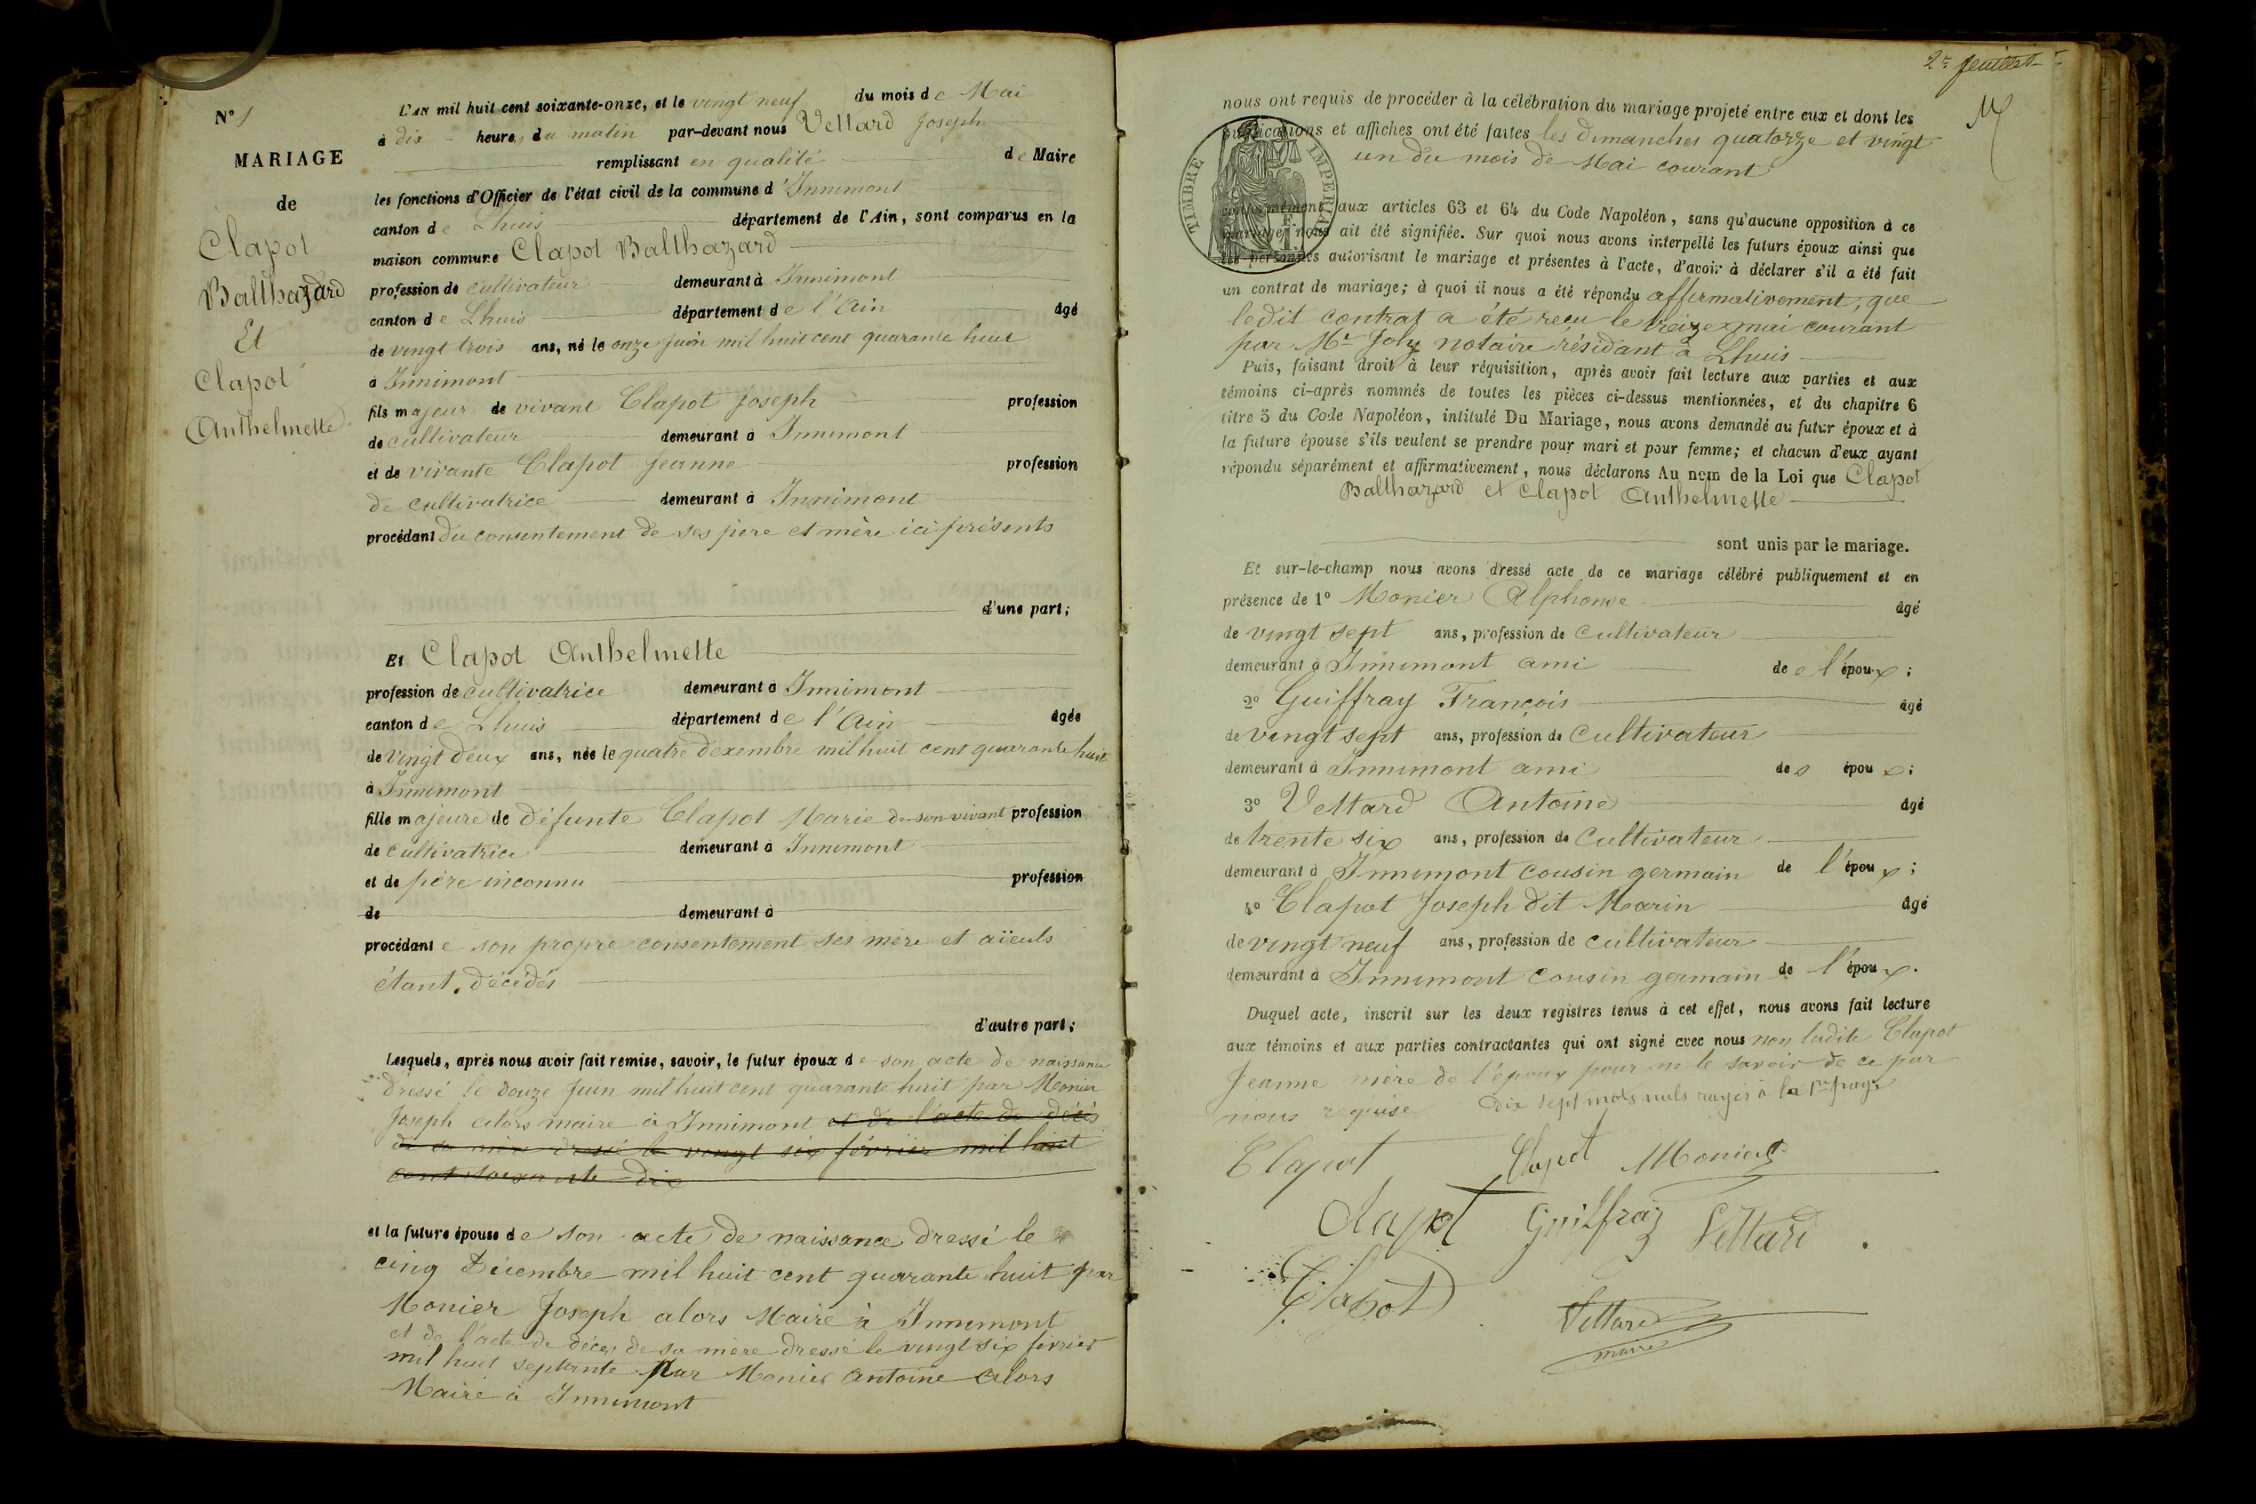 N° 1
MARIAGE
de
Clapot
Balthazard
Et
Clapot
Anthelmette
L'an mil huit cent soixante-onze, et le vingt neuf du mois de Mai
à dix heures du matin par-devant nous Vettard Joseph
remplissant en qualité de Maire
les fonctions d'Officier de l'état civil de la commune d'Innimont
canton de Lhuis département de l'Ain, sont comparus en la
maison commune Clapot Balthazard
profession de cultivateur demeurant à Innimont
canton de Lhuis département de l'Ain âgé
de vingt trois ans, né le onze juin mil huit cent quarante huit
à Innimont
fils majeur de vivant Clapot Joseph profession
de cultivateur demeurant à Innimont
et de vivante Clapot Jeanne profession
de cultivatrice demeurant à Innimont
procédant du consentement de ses père et mère ici présents
d'une part;
Et Clapot Anthelmette
profession de cultivatrice demeurant à Innimont
canton de Lhuis département de l'Ain âgée
de vingt deux ans, née le quatre dexembre mil huit cent quarante huit
à Innimont
fille majeure de défunte Clapot Marie de son vivant profession
de cultivatrice demeurant à Innimont
et de père inconnu profession
de demeurant à
procédant e son propre consentement ses mère et aïeuls
étant décédés
d'autre part;
Lesquels, après nous avoir fait remise, savoir, le futur époux de son acte de naissance
dressé le douze Juin mil huit cent quarante huit par Monier
Joseph alors maire à Innimont et de l'acte de décès
de sa mère dressé le vingt six février mil huit
cent soixante dix
et la future épouse de son acte de naissance dressé le
cinq Décembre mil huit cent quarante huit par
Monier Joseph alors Maire à Innimont
et de l'acte de décès de sa mère dressé le vingt six février
mil huit septante par Monier Antoine alors
Maire à Innimont
2e feuillet
nous ont requis de procéder à la célébration du mariage projeté entre eux et dont les
publications et affiches ont été faites les dimanches quatorze et vingt
un du mois de Mai courant
TIMBRE IMPERIAL
conformément aux articles 63 et 64 du Code Napoléon, sans qu'aucune opposition à ce
mariage nous ait été signifiée. Sur quoi nous avons interpellé les futurs époux ainsi que
les personnes autorisant le mariage et présentes à l'acte, d'avoir à déclarer s'il a été fait
un contrat de mariage; à quoi il nous a été répondu affirmativement, que
ledit contrat a été reçu le treize mai courant
par Me Joly notaire résidant à Lhuis
Puis, faisant droit à leur réquisition, après avoir fait lecture aux parties et aux
témoins ci-après nommés de toutes les pièces ci-dessus mentionnées, et du chapitre 6
titre 5 du Code Napoléon, intitulé Du Mariage, nous avons demandé au futur époux et à
la future épouse s'ils veulent se prendre pour mari et pour femme; et chacun d'eux ayant
répondu séparément et affirmativement, nous déclarons Au nom de la Loi que Clapot
Balthazard et Clapot Anthelmette
sont unis par le mariage.
Et sur-le-champ nous avons dressé acte de ce mariage célébré publiquement et en
présence de 1° Monier Alphonse âgé
de vingt sept ans, profession de cultivateur
demeurant à Innimont ami de e l'époux;
2° Guiffray François âgé
de vingt sept ans, profession de cultivateur
demeurant à Innimont ami des époux;
3° Vettard Antoine âgé
de trente six ans, profession de cultivateur
demeurant à Innimont cousin germain de l'époux;
4° Clapot Joseph dit Marin âgé
de vingt neuf ans, profession de cultivateur
demeurant à Innimont cousin germain de l'époux.
Duquel acte, inscrit sur les deux registres tenus à cet effet, nous avons fait lecture
aux témoins et aux parties contractantes qui ont signé avec nous non ladite Clapot
Jeanne mère de l'époux pour ne le savoir de ce par
nous requise Dix sept mots nuls rayés à la 1re page
Clapot Clapot Monier
Clapot Guiffray Vettard
Clapot Vettard
maire